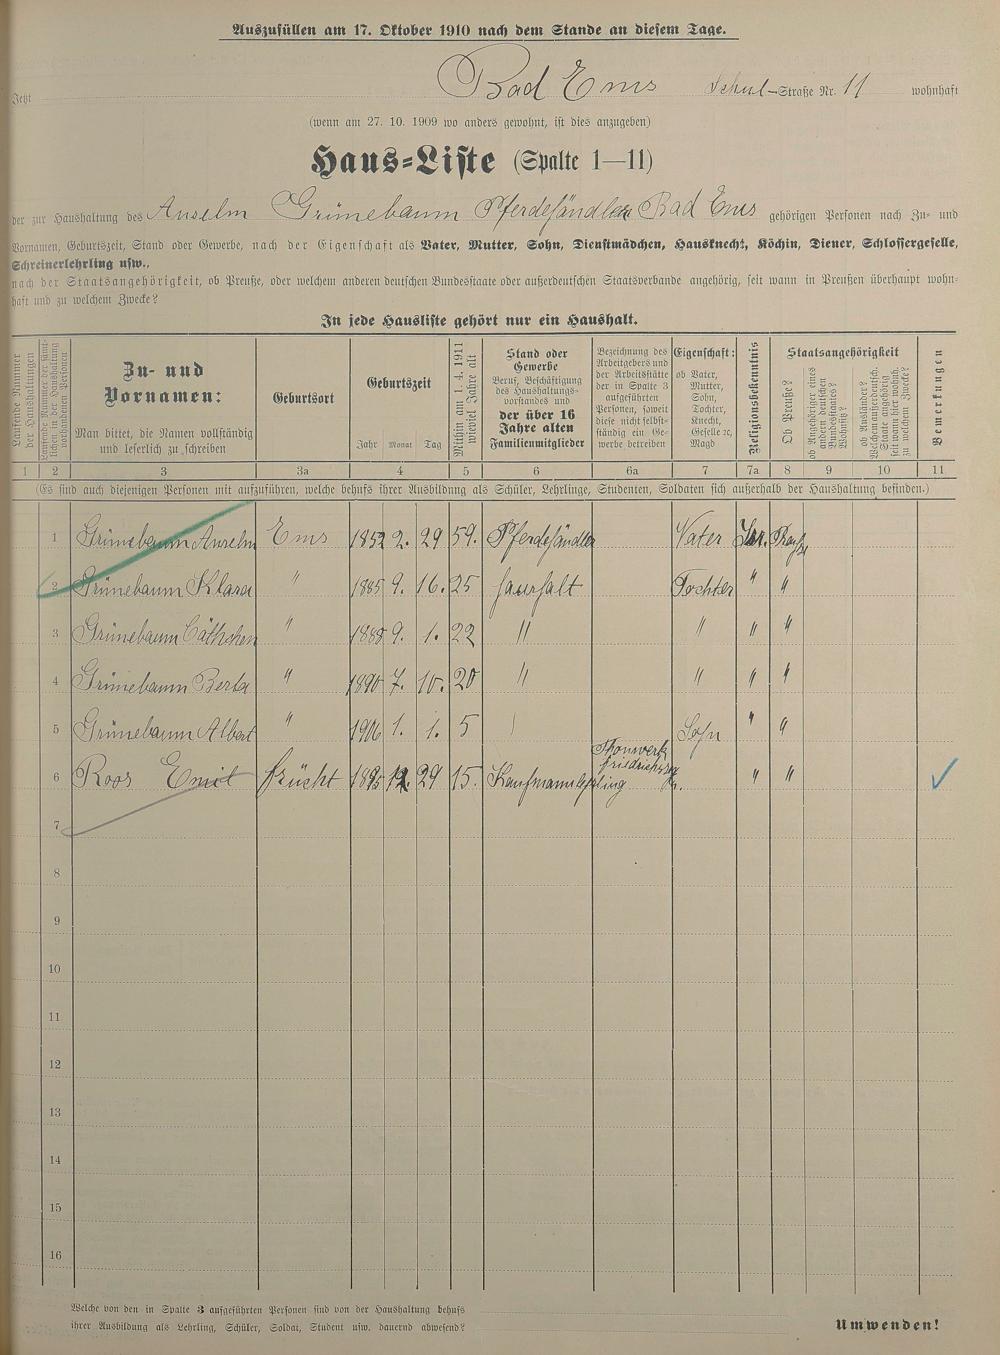 Auszufüllen am 17. Oktober 1910 nach dem Stande an diesem Tage.
Jetzt Bad Ems Schul-Straße Nr. 11 wohnhaft
(wenn am 27. 10. 1909 wo anders gewohnt, ist dies anzugeben)
Haus-Liste (Spalte 1—11)
der zur Haushaltung des Anselm Grünebaum Pferdehändler Bad Ems gehörigen Personen nach Zu- und
Vornamen, Geburtszeit, Stand oder Gewerbe, nach der Eigenschaft als Vater, Mutter, Sohn, Dienstmädchen, Hausknecht, Köchin, Diener, Schlossergeselle,
Schreinerlehrling usw.,
nach der Staatsangehörigkeit, ob Preuße, oder welchem anderen deutschen Bundesstaate oder außerdeutschen Staatsverbande angehörig, seit wann in Preußen überhaupt wohn-
haft und zu welchem Zwecke?
In jede Hausliste gehört nur ein Haushalt.
Laufende Nummer der Haushaltungen
Laufende Nummer der sämt-
lichen in der Haushaltung
vorhandenen Personen
Zu- und
Vornamen:
Man bittet, die Namen vollständig
und leserlich zu schreiben
Geburtsort
Geburtszeit
Jahr Monat Tag
Mithin am 1. 4. 1911
wieviel Jahre alt
Stand oder
Gewerbe
Beruf, Beschäftigung
des Haushaltungs-
vorstandes und
der über 16
Jahre alten
Familienmitglieder
Bezeichnung des
Arbeitgebers und
der Arbeitsstätte
der in Spalte 3
aufgeführten
Personen, soweit
diese nicht selbst-
ständig ein Ge-
werbe betreiben
Eigenschaft:
ob Vater,
Mutter,
Sohn,
Tochter,
Knecht,
Geselle ec,
Magd
Religionsbekenntnis
Staatsangehörigkeit
Ob Preuße?
ob Angehöriger eines
andern deutschen
Bundesstaates?
Wohnsitz?
ob Ausländer?
Welchem außerdeutsch.
Staate angehörig
seit wann hier wohnh.
zu welchem Zwecke?
Bemerkungen
1 2 3 3a 4 5 6 6a 7 7a 8 9 10 11
(Es sind auch diejenigen Personen mit aufzuführen, welche behufs ihrer Ausbildung als Schüler, Lehrlinge, Studenten, Soldaten sich außerhalb der Haushaltung befinden.)
1 Grünebaum Anselm Ems 1852 2. 29 59. Pferdehändler Vater Isr. Preuße
2 Grünebaum Klara " 1885 9. 16. 25 Haushalt Tochter " "
3 Grünebaum Cäthchen " 1888 9. 1. 22 " " " "
4 Grünebaum Berta " 1890 7. 10. 20 " " " "
5 Grünebaum Albert " 1906 1. 1. 5 Sohn " "
6 Roos Emil Frücht 1895 12. 29 15. Kaufmannlehrling Thonwerk " "
7
8
9
10
11
12
13
14
15
16
Welche von den in Spalte 3 aufgeführten Personen sind von der Haushaltung behufs
ihrer Ausbildung als Lehrling, Schüler, Soldat, Student usw. dauernd abwesend?
Umwenden!